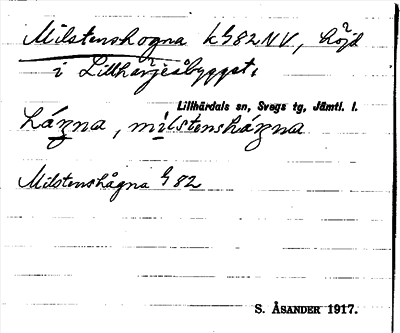 Milstenshogna k G82NV., höjd
i Lillhärjeåbygget.
Lillhärdals sn, Svegs tg, Jämtl. l.
håŋna, mılstenshåŋna
Milstenshågna G 82
S. ÅSANDER 1917.